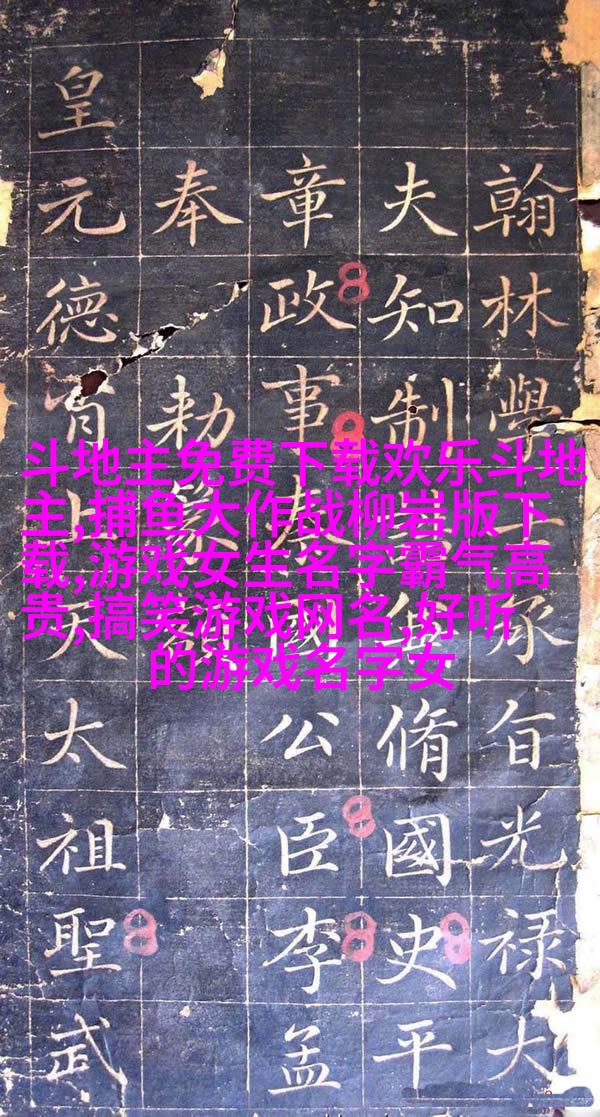 斗地主免费下载欢乐斗地
主,捕鱼大作战柳岩版下
载,游戏女生名字霸气高
贵,搞笑游戏网名,好听
的游戏名字女
翰林學士承旨光禄大
夫知制脩國史平
章政事國公臣李孟
奉勅
皇元德天太祖聖武